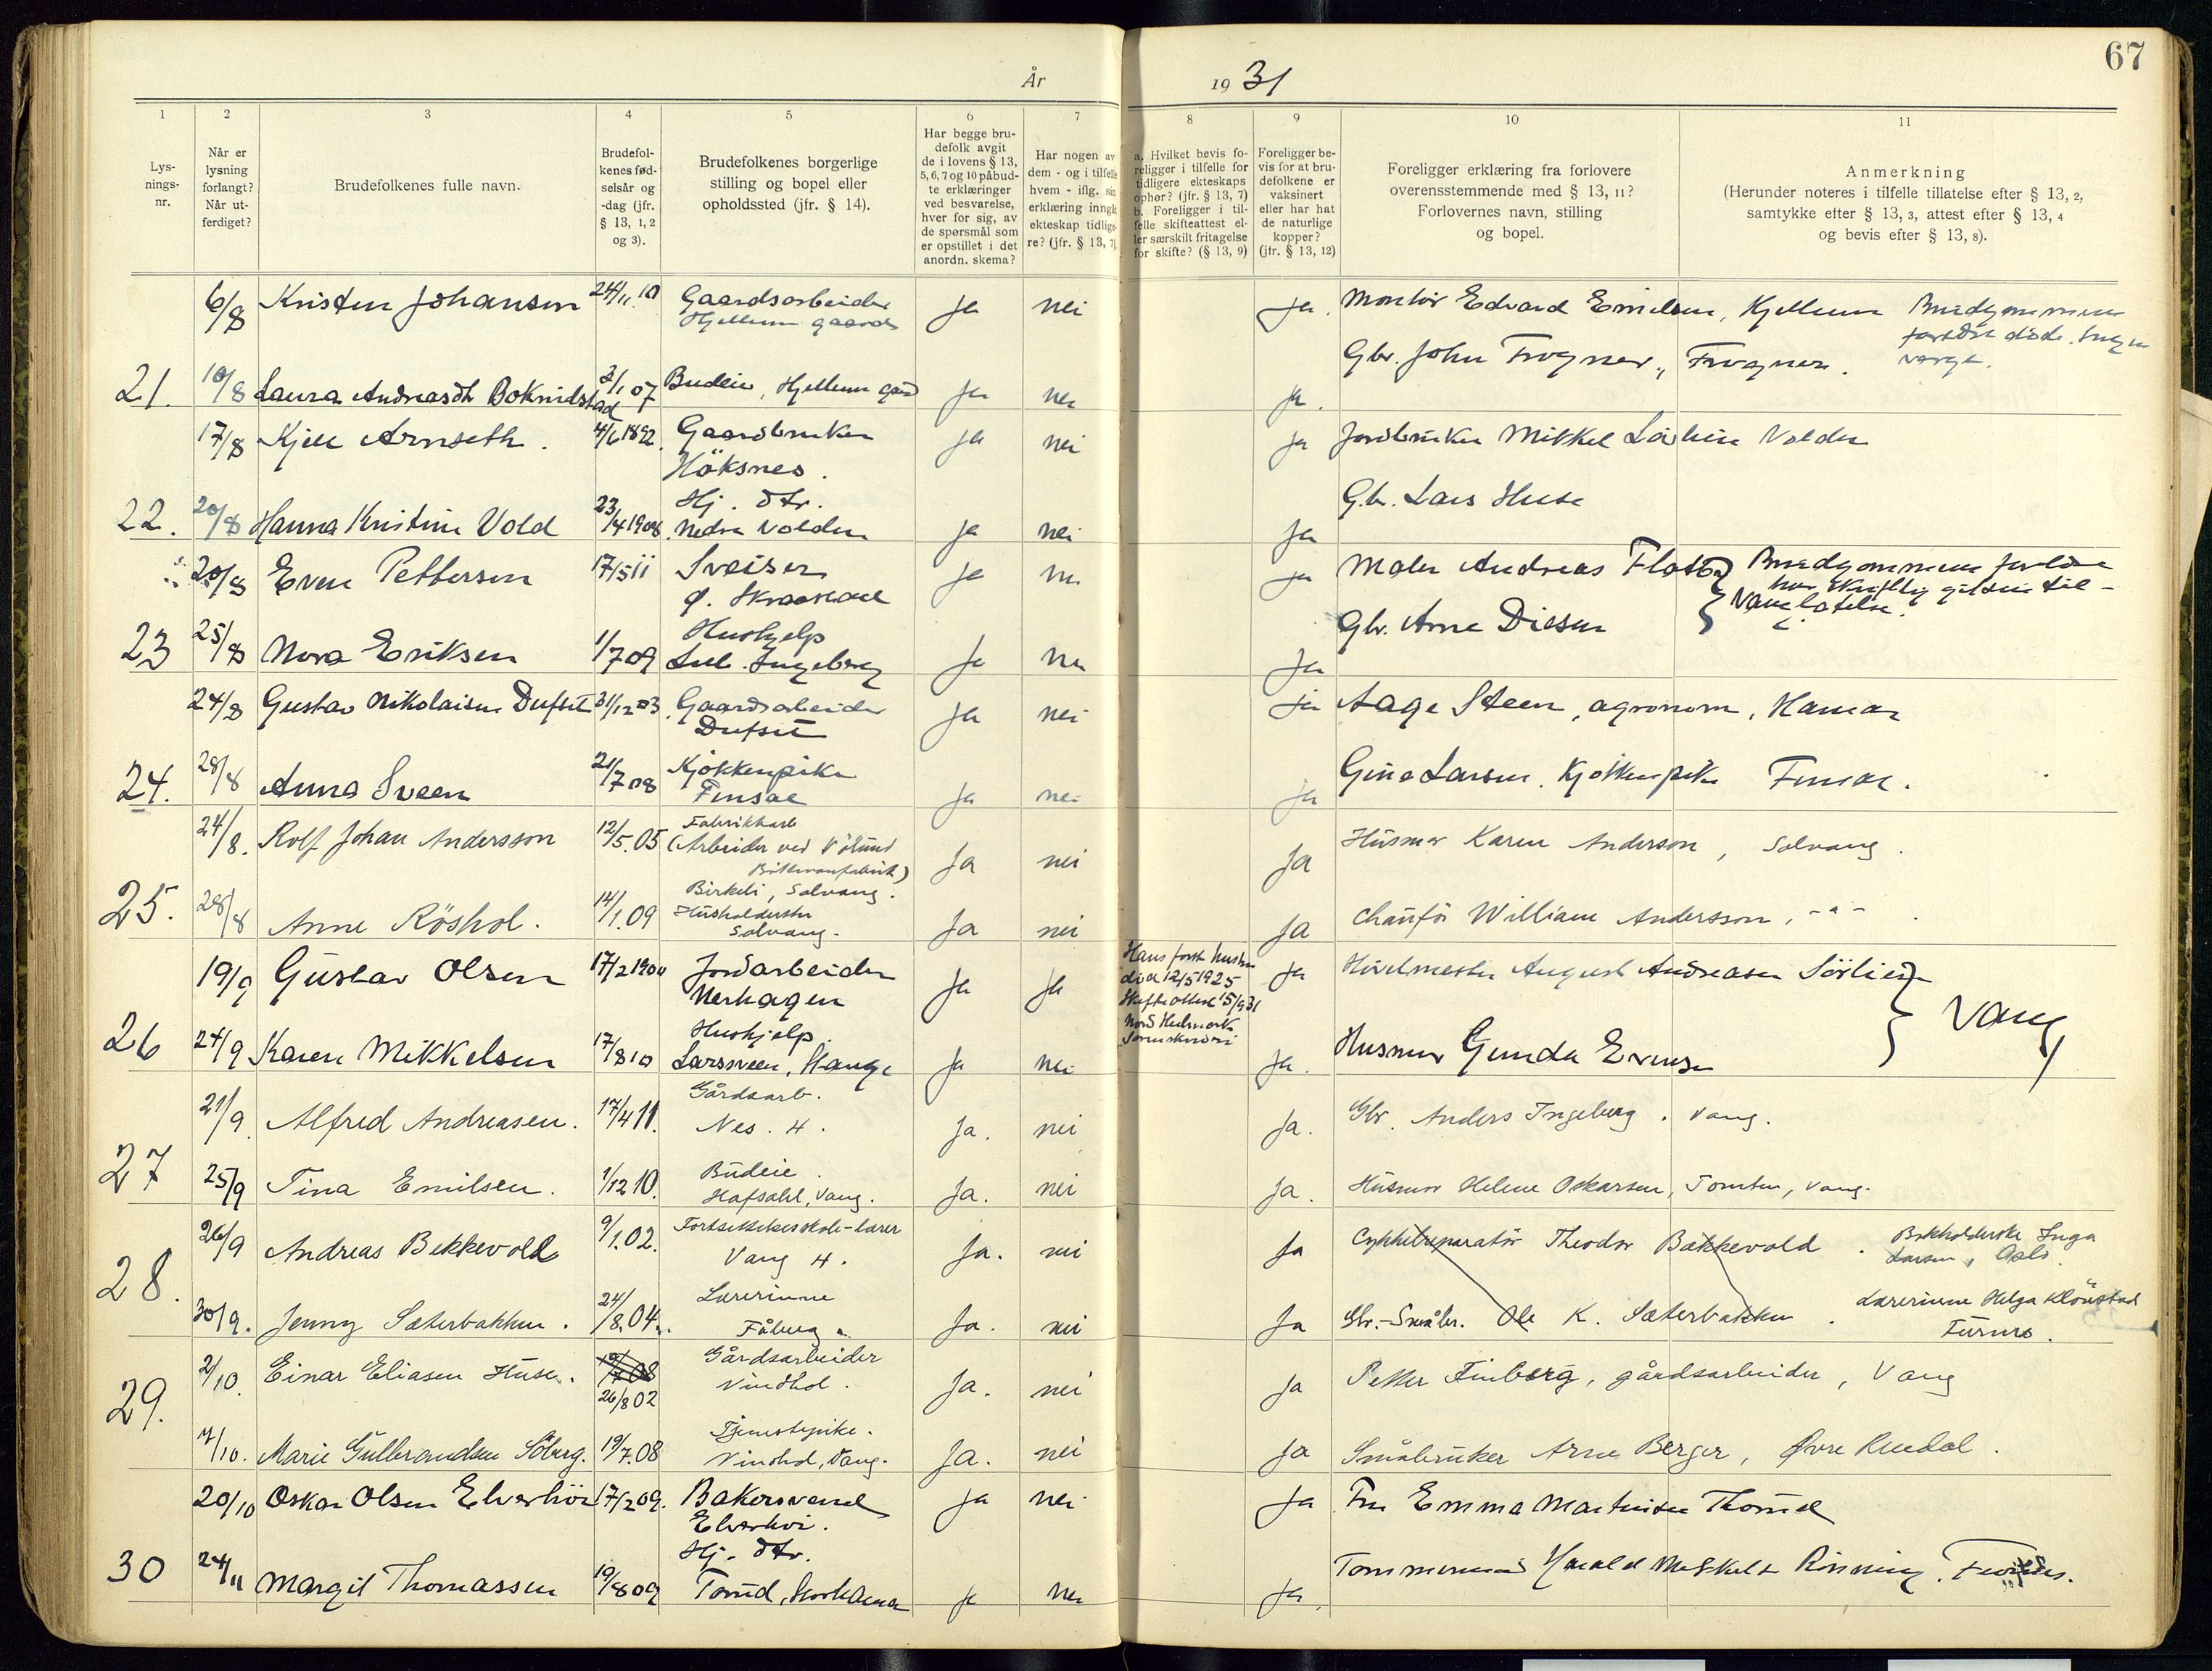 67
År 1931
1 2 3 4 5 6 7 8 9 10 11
Lys-
nings-
nr.
Når er
lysning
forlangt?
Når ut-
ferdiget?
Brudefolkenes fulle navn.
Brudefol-
kenes fød-
selsår og
-dag (jfr.
§ 13, 1, 2
og 3).
Brudefolkenes borgerlige
stilling og bopel eller
opholdssted (jfr. § 14).
Har begge bru-
defolk avgit
de i lovens § 13,
5, 6, 7 og 10 påbud-
te erklæringer
ved besvarelse,
hver for sig, av
de spørsmål som
er opstillet i det
anordn. skema?
Har nogen av
dem - og i tilfelle
hvem - iflg. sin
erklæring inngå
ekteskap tidlige-
re? (jfr. § 13, 7)
a. Hvilket bevis fo-
religger i tilfelle for
tidligere ekteskaps
ophør? (jfr. § 13, 7)
b. Foreligger i til-
felle skifteattest el-
ler særskilt fritagelse
for skifte? (§ 13, 9)
Foreligger be-
vis for at bru-
defolkene er
vaksinert
eller har hat
de naturlige
kopper?
(jfr. § 13, 12)
Foreligger erklæring fra forlovere
overensstemmende med § 13, 11?
Forlovernes navn, stilling
og bopel.
Anmerkning
(Herunder noteres i tilfelle tillatelse efter § 13, 2,
samtykke efter § 13, 3, attest efter § 13, 4
og bevis efter § 13, 8).
6/8 Kristen Johansen 24/11.10 Gaardsarbeider Hjellum gaard ja nei ja. Montør Edvard Emilsen, Hjellum Brudgommens
foreldre døde. Ingen
verge.
21. 10/8 Laura Andreasdt Boknidstad 3/1 07 Budeie, Hjellum gaard ja nei ja. Gbr. John Frogner, Frogner.
17/8 Kjell Arnseth. 4/6 1892. Gaardbruker Höksnes. ja nei ja Jordbruker Mikkel Volden
22. 20/8 Hanna Kristine Vold 23/4 1908. Hj. dtr. Nedre Volden ja nei ja G.br. Lars Huse
20/8 Even Pettersen 17/5 11 Sveiser ja nei ja Maler Andreas Brudgommens foreldre
har skriftlig gitt sin til-
latelse.
23 25/8 Nora Eriksen 1/7 09 Hushjelp Ingeberg ja nei ja Gbr. Arne Diesen } Vang
24/8 Gustav Nikolaisen Dufset 31/12 03. Gaardsarbeider Dufset ja nei ja Aage Steen, agronom, Hamar
24. 28/8 Anna Sveen 21/7 08 Kjøkkenpike Finsal ja nei ja Gina Larsen. Kjøkkenpike Finsal.
24/8. Rolf Johan Andersson 12/5.05 Fabrikkarb. (Arbeider ved Vølund
Birkeli, Solvang. Ja nei Ja Husmor Karen Anderson, Solvang.
25. 28/8 Anne Röshol. 14/1.09 Husholderske Solvang. Ja nei Ja Chauför William Andersson, -"-
19/9 Gustav Olsen 17/2 1904 Jordarbeider Nerhagen ja ja Hans første hustru
död 12/5 1925
Skifteattest 15/9 31
Nord Hedmark
Sorenskriveri ja August Andreasen Sörlien
26 24/9 Karen Mikkelsen 17/8 10 Hushjelp. Larssveen, Stange ja nei ja. Husmor Gunda Evensen } Vang
21/9. Alfred Andreasen. 17/4 11. Gårdsarb. Nes. H. Ja. nei Ja. Gbr. Anders Ingeberg. Vang.
27 25/9 Tina Emilsen. 1/12 10. Budeie. Hafsahl, Vang. Ja. nei Ja. Husmor Helene Oskarsen, Tomten, Vang.
26/9 Andreas Bekkevold 9/1.02. Fortsettelsesskole-lærer Vang H. Ja. nei Ja Cykkelreparatör Theodor Bakkevold. Bokholderske Inga
Larsen, Oslo.
28. 30/9. Jenny Sæterbakken. 24/8.04. Lærerinne Fåberg. Ja. nei Ja Gbr.-Småbr. Ole K. Sæterbakken. Lærerinne Helga Klöustad
Furnes.
29. 2/10. Einar Eliasen Huse. 19/7 08 26/8 02 Gårdsarbeider Vindhol. Ja. nei Ja Petter Finberg, gårdsarbeider, Vang
7/10. Marie Gulbrandsen Söberg. 19/7.08 Tjenestepike. Vindhol, Vang. Ja. nei Ja Småbruker Arne Berger, Øvre Rudal.
20/10 Oskar Olsen Elverhöi 17/2 09. Bakersvend Elverhöi. ja nei ja Fru Emma Martinsen Thomd
30 24/11 Margit Thomassen 19/8 09 Hj. dtr. Tomd, Storhamar ja nei ja. Tømmermand Harald Rönning. Furnes.